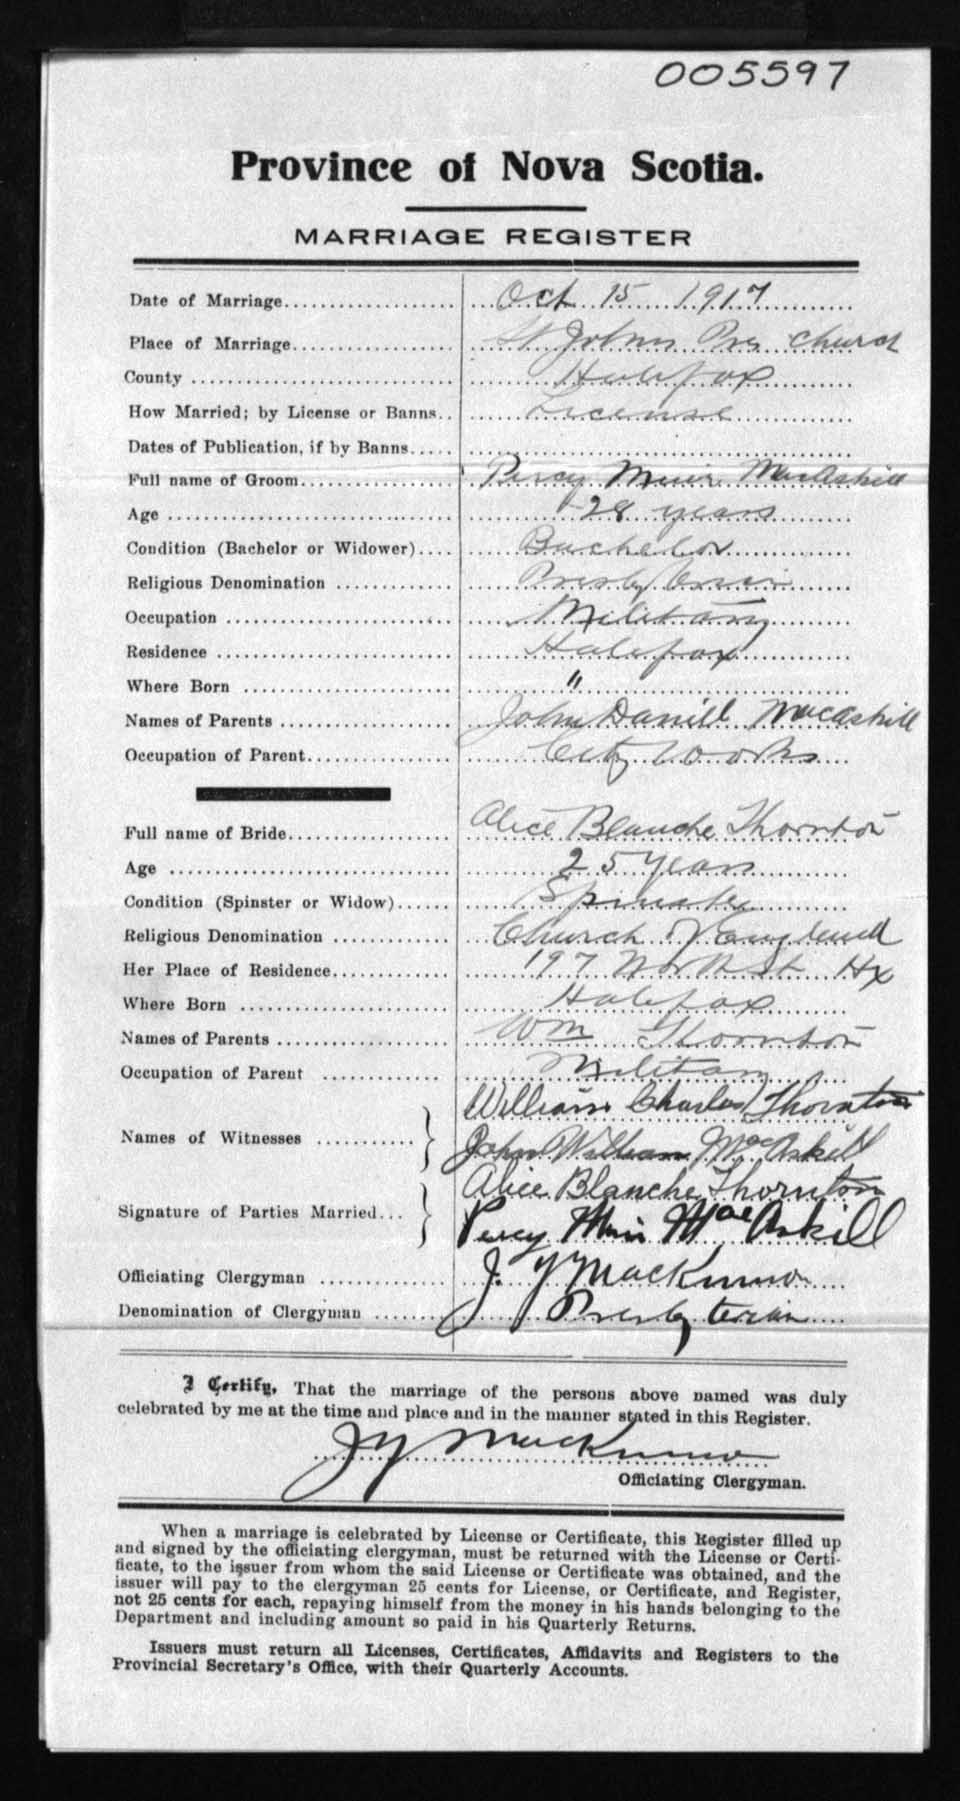 005597
Province of Nova Scotia.
MARRIAGE REGISTER
Date of Marriage Oct 15 1917
Place of Marriage St Johns Pres church
County Halifax
How Married; by License or Banns License
Dates of Publication, if by Banns
Full name of Groom Percy Muir MacAskill
Age 28 years
Condition (Bachelor or Widower) Bachelor
Religious Denomination Presbyterian
Occupation Military
Residence Halifax
Where Born "
Names of Parents John Daniel MacAskill
Occupation of Parent City Works
Full name of Bride Alice Blanche Thornton
Age 25 years
Condition (Spinster or Widow) Spinster
Religious Denomination Church of England
Her Place of Residence 197 North St Hx
Where Born Halifax
Names of Parents Wm Thornton
Occupation of Parent Military
William Charles Thornton
Names of Witnesses
John William MacAskill
Alice Blanche Thornton
Signature of Parties Married
Percy Muir MacAskill
Officiating Clergyman J. Y MacKinnon
Denomination of Clergyman Presbyterian
I Certify, That the marriage of the persons above named was duly
celebrated by me at the time and place and in the manner stated in this Register.
J Y MacKinnon
Officiating Clergyman.
When a marriage is celebrated by License or Certificate, this Register filled up
and signed by the officiating clergyman, must be returned with the License or Certi-
ficate, to the issuer from whom the said License or Certificate was obtained, and the
issuer will pay to the clergyman 25 cents for License, or Certificate, and Register,
not 25 cents for each, repaying himself from the money in his hands belonging to the
Department and including amount so paid in his Quarterly Returns.
Issuers must return all Licenses, Certificates, Affidavits and Registers to the
Provincial Secretary's Office, with their Quarterly Accounts.